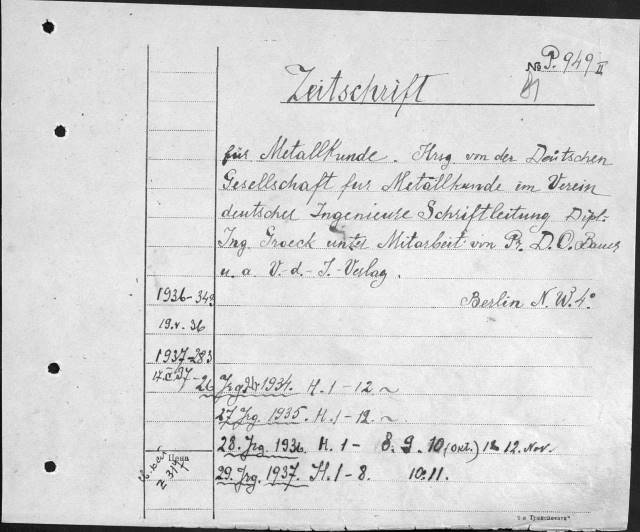 № P. 949 II
Zeitschrift
für Metallkunde. Hrsg von der Deutschen
Gesellschaft für Metallkunde im Verein
deutscher Ingenieure Schriftleitung Dipl.-
Ing Groeck unter Mitarbeit von Pr. D. O. Bauer
u. a. V-d-I-Verlag.
1936-349
Berlin N.W. 4°
19.V-36
1937-283
26 Jrg. 1934. H. 1-12 ~
27 Jrg. 1935. H. 1-12 ~
28. Jrg. 1936. H. 1- 8. 9. 10 (Okt.) 12. Nov.
Цена
29. Jrg. 1937. H. 1-8. 10. 11.